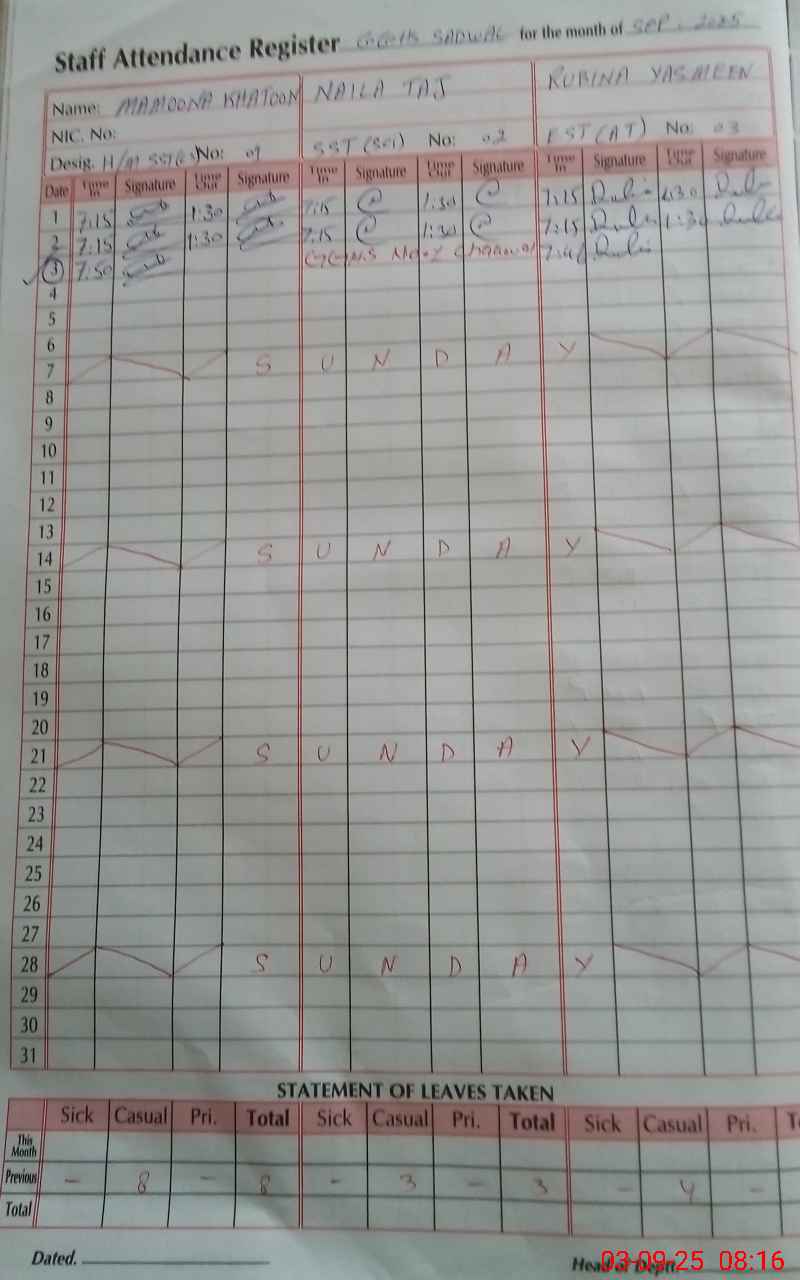 Staff Attendance Register GGHS SADWAL for the month of SEP. 2025
Name: MAMOONA KHATOON NAILA TAJ RUBINA YASMEEN
NIC. No:
Desig. H/M SST(G) No: 01 SST (Sci) No: 02 EST (AT) No: 03
Date Time In Signature Time Out Signature Time In Signature Time Out Signature Time In Signature Time Out Signature
1 7:15 1:30 7:15 1:30 7:15 1:30
2 7:15 1:30 7:15 1:30 7:15 1:30
3 7:50 GGHS
4
5
6
7 S U N D A Y
8
9
10
11
12
13
14 S U N D A Y
15
16
17
18
19
20
21 S U N D A Y
22
23
24
25
26
27
28 S U N D A Y
29
30
31
STATEMENT OF LEAVES TAKEN
Sick Casual Pri. Total Sick Casual Pri. Total Sick Casual Pri. T
This Month
Previous - 8 - 8 - 3 - 3 - 4 -
Total
Dated. Head of Deptt.
03-09-25 08:16